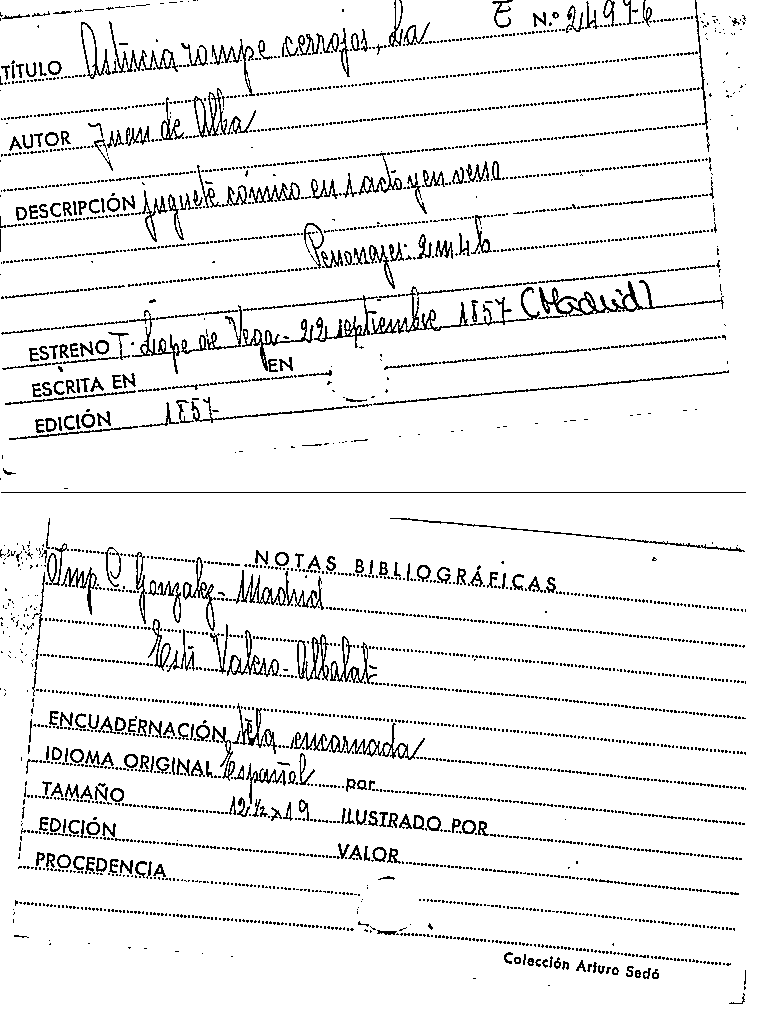 E N.º 2497-6
TÍTULO Astucia rompe cerrojos, La
AUTOR Juan de Alba
DESCRIPCIÓN juguete cómico en 1 acto y en verso
Personajes: 2 m 4 h
ESTRENO T. Lope de Vega - 22 septiembre 1857 (Madrid)
ESCRITA EN EN
EDICIÓN 1857
NOTAS BIBLIOGRÁFICAS
Imp C. Gonzalez - Madrid
Valero - Albalat
ENCUADERNACIÓN tela encarnada
IDIOMA ORIGINAL Español por
TAMAÑO 12 ½ x 19 ILUSTRADO POR
EDICIÓN VALOR
PROCEDENCIA
Colección Arturo Sedó